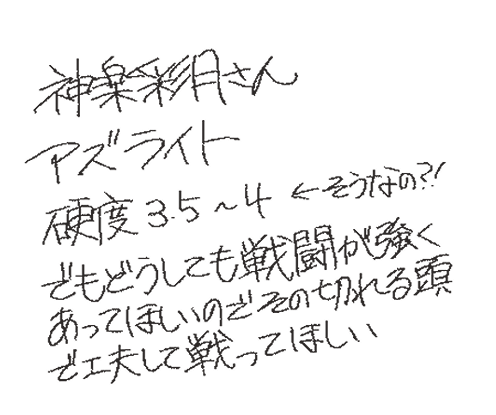 神楽彩月さん
アズライト
硬度3.5～4 ←そうなの?!
でもどうしても戦闘が強く
あってほしいのでその切れる頭
で工夫して戦ってほしい